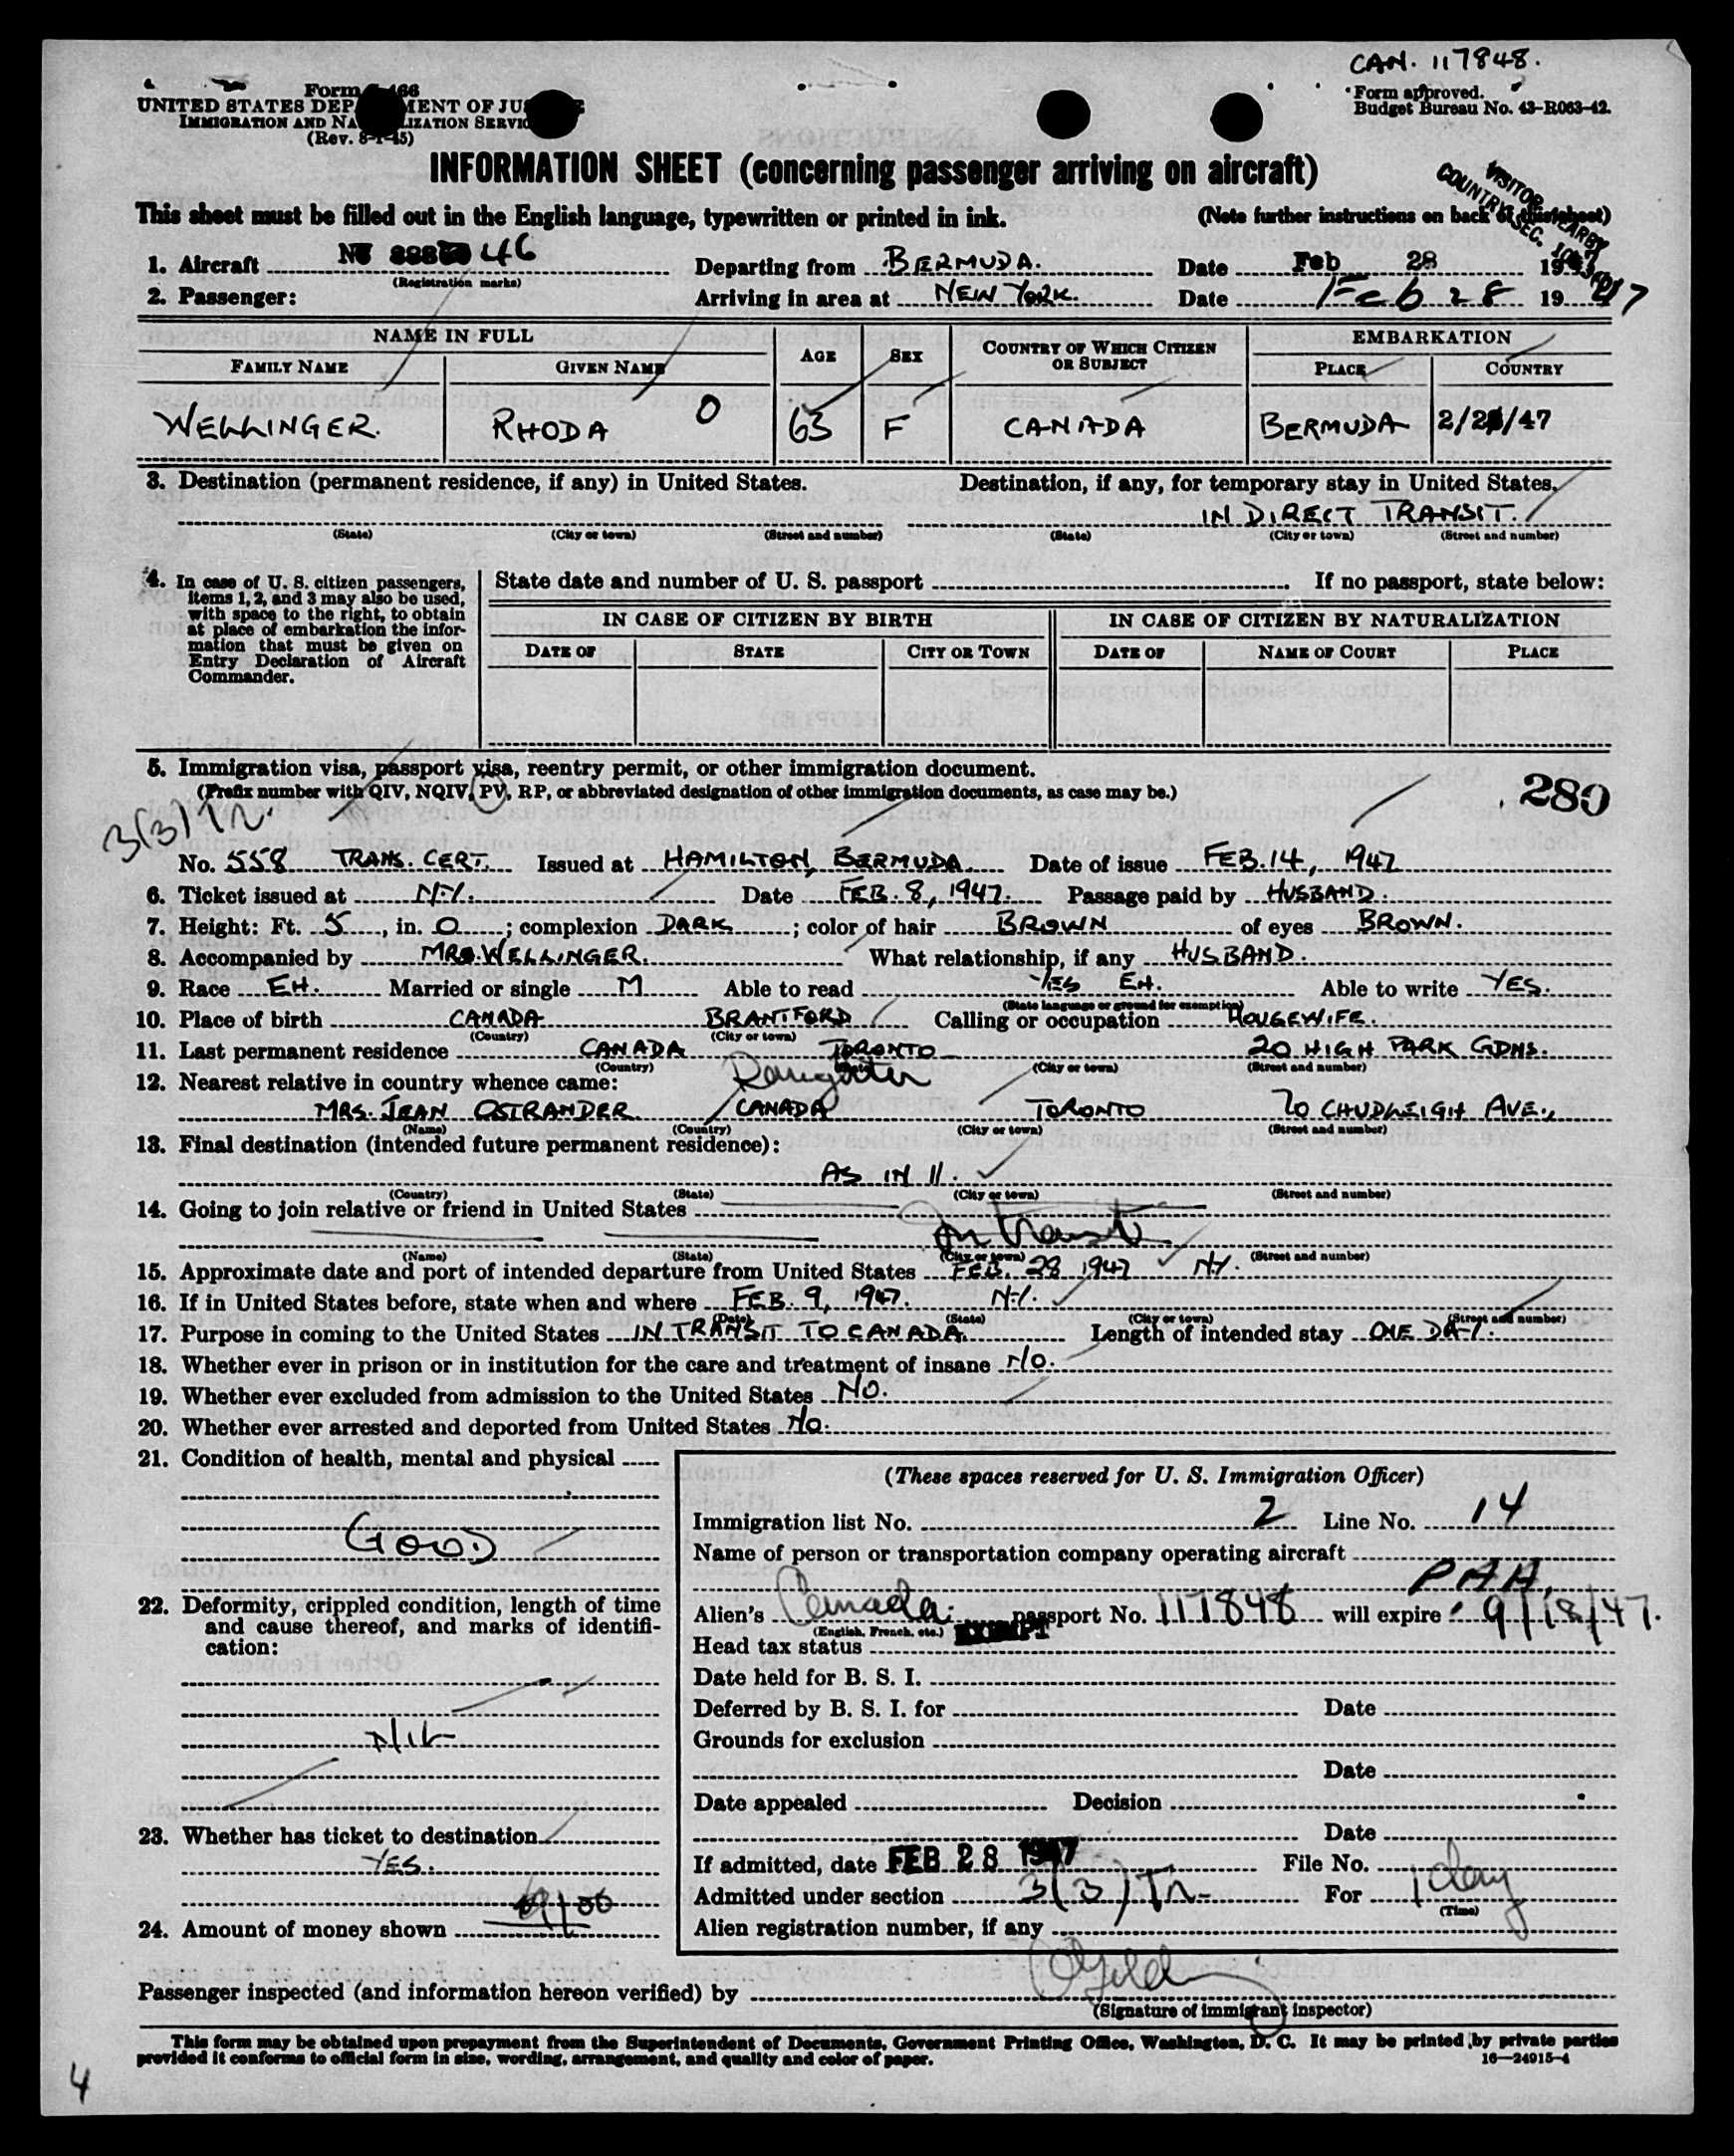 CAN. 117848.
Form 466
Form approved.
UNITED STATES DEP MENT OF JU
Budget Bureau No. 43-R063-42.
IMMIGRATION AND NA LIZATION SERVIC
(Rev. 8-1-45)
INFORMATION SHEET (concerning passenger arriving on aircraft)
VISITOR NEARBY
COUNTRY SEC.
This sheet must be filled out in the English language, typewritten or printed in ink. (Note further instructions on back of this sheet)
1. Aircraft 46 Departing from BERMUDA. Date Feb 28 19
(Registration marks)
2. Passenger: Arriving in area at NEW YORK. Date Feb 28 1947
NAME IN FULL AGE SEX COUNTRY OF WHICH CITIZEN OR SUBJECT EMBARKATION
FAMILY NAME GIVEN NAME PLACE COUNTRY
WELLINGER. RHODA O 63 F CANADA BERMUDA 2/28/47
3. Destination (permanent residence, if any) in United States. Destination, if any, for temporary stay in United States.
IN DIRECT TRANSIT.
(State) (City or town) (Street and number) (State) (City or town) (Street and number)
4. In case of U. S. citizen passengers, items 1, 2, and 3 may also be used, with space to the right, to obtain at place of embarkation the information that must be given on Entry Declaration of Aircraft Commander.
State date and number of U. S. passport If no passport, state below:
IN CASE OF CITIZEN BY BIRTH IN CASE OF CITIZEN BY NATURALIZATION
DATE OF STATE CITY OR TOWN DATE OF NAME OF COURT PLACE
5. Immigration visa, passport visa, reentry permit, or other immigration document.
(Prefix number with QIV, NQIV, PV, RP, or abbreviated designation of other immigration documents, as case may be.)
280
3(3) Tr.
No. 558 TRANS. CERT. Issued at HAMILTON, BERMUDA. Date of issue FEB. 14, 1947
6. Ticket issued at N.Y. Date FEB. 8, 1947. Passage paid by HUSBAND.
7. Height: Ft. 5, in. 0; complexion DARK; color of hair BROWN of eyes BROWN.
8. Accompanied by MR. WELLINGER. What relationship, if any HUSBAND.
9. Race EH. Married or single M Able to read YES EH. Able to write YES.
(State language or ground for exemption)
10. Place of birth CANADA BRANTFORD Calling or occupation HOUSEWIFE.
(Country) (City or town)
11. Last permanent residence CANADA TORONTO 20 HIGH PARK GDNS.
(Country) (State) (City or town) (Street and number)
12. Nearest relative in country whence came: Daughter
MRS. JEAN OSTRANDER CANADA TORONTO 70 CHUDLEIGH AVE.,
(Name) (Country) (City or town) (Street and number)
13. Final destination (intended future permanent residence):
AS IN 11.
(Country) (State) (City or town) (Street and number)
14. Going to join relative or friend in United States
In transit
(Name) (State) (City or town) (Street and number)
15. Approximate date and port of intended departure from United States FEB. 28 1947 N.Y.
16. If in United States before, state when and where FEB. 9, 1947. N.Y.
(Date) (State) (City or town) (Street and number)
17. Purpose in coming to the United States IN TRANSIT TO CANADA. Length of intended stay ONE DAY.
18. Whether ever in prison or in institution for the care and treatment of insane NO.
19. Whether ever excluded from admission to the United States NO.
20. Whether ever arrested and deported from United States NO.
21. Condition of health, mental and physical
GOOD
22. Deformity, crippled condition, length of time and cause thereof, and marks of identification:
NIL
23. Whether has ticket to destination
YES.
24. Amount of money shown
(These spaces reserved for U. S. Immigration Officer)
Immigration list No. 2 Line No. 14
Name of person or transportation company operating aircraft
PAA.
Alien's Canada passport No. 117848 will expire 9/18/47.
(English, French, etc.) EXEMPT
Head tax status
Date held for B. S. I.
Deferred by B. S. I. for Date
Grounds for exclusion
Date
Date appealed Decision
Date
If admitted, date FEB 28 1947 File No.
Admitted under section 3(3) Tr- For 1 day
(Time)
Alien registration number, if any
Passenger inspected (and information hereon verified) by
(Signature of immigrant inspector)
This form may be obtained upon prepayment from the Superintendent of Documents, Government Printing Office, Washington, D. C. It may be printed by private parties
provided it conforms to official form in size, wording, arrangement, and quality and color of paper.
16—24915-4
4